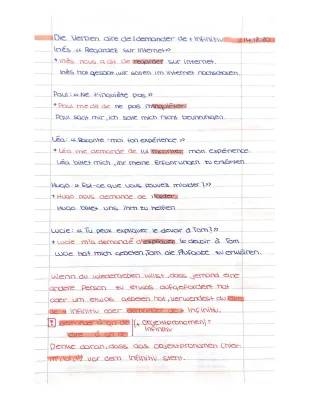 Die Verben dire de / demander de + Infinitiv
Inès: « Regardez sur Internet.»
→ Inès nous a dit de regarder sur Internet.
Inès hat gesagt, wir sollen im Internet nachschauen.
Paul: « Ne t'inquiète pas.»
→ Paul me dit de ne pas m'inquiéter.
Paul sagt mir, ich solle mich nicht beunruhigen.
Léa: « Raconte-moi ton expérience.»
→ Léa me demande de lui raconter mon expérience.
Léa bittet mich, ihr meine Erfahrungen zu erzählen.
Hugo: « Est-ce que vous pouvez m'aider?»
→ Hugo nous demande de l'aider.
Hugo bittet uns, ihm zu helfen.
Lucie: « Tu peux expliquer le devoir à Tom?»
→ Lucie m'a demandé d'expliquer le devoir à Tom.
Lucie hat mich gebeten, Tom die Aufgabe zu erklären.
Wenn du wiedergeben willst, dass jemand eine
andere Person zu etwas aufgefordert hat
oder um etwas gebeten hat, verwendest du dire
de + Infinitiv oder demander de + Infinitiv.
demander à qn de (+ Objektpronomen) +
dire à qn de Infinitiv
Denke daran, dass das Objektpronomen (hier:
) vor dem Infinitiv steht.